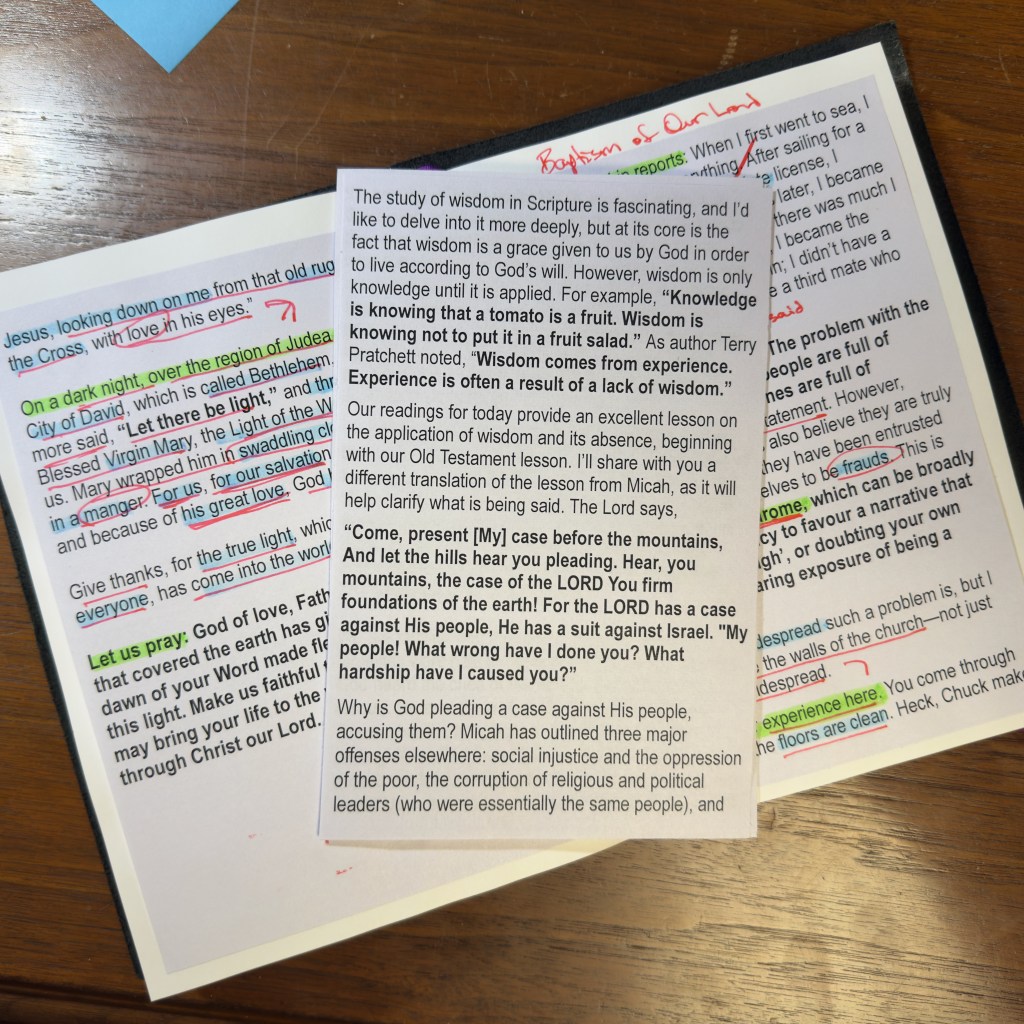 Baptism of Our Lord
reports: When I first went to sea, I
After sailing for a
license, I
later, I became
there was much I
I became the
I didn't have a
a third mate who
said
The problem with the
people are full of
are full of
However,
also believe they are truly
they have been entrusted
to be frauds. This is
which can be broadly
to favour a narrative that
or doubting your own
exposure of being a
such a problem is, but I
the walls of the church—not just
experience here. You come through
the floors are clean. Heck, Chuck
The study of wisdom in Scripture is fascinating, and I'd
like to delve into it more deeply, but at its core is the
fact that wisdom is a grace given to us by God in order
to live according to God's will. However, wisdom is only
knowledge until it is applied. For example, “Knowledge
is knowing that a tomato is a fruit. Wisdom is
knowing not to put it in a fruit salad.” As author Terry
Pratchett noted, “Wisdom comes from experience.
Experience is often a result of a lack of wisdom.”
Our readings for today provide an excellent lesson on
the application of wisdom and its absence, beginning
with our Old Testament lesson. I'll share with you a
different translation of the lesson from Micah, as it will
help clarify what is being said. The Lord says,
“Come, present [My] case before the mountains,
And let the hills hear you pleading. Hear, you
mountains, the case of the LORD You firm
foundations of the earth! For the LORD has a case
against His people, He has a suit against Israel. "My
people! What wrong have I done you? What
hardship have I caused you?”
Why is God pleading a case against His people,
accusing them? Micah has outlined three major
offenses elsewhere: social injustice and the oppression
of the poor, the corruption of religious and political
leaders (who were essentially the same people), and
Jesus, looking down on me from that old
the Cross, with love in his eyes.”
On a dark night, over the region of Judea
City of David, which is called Bethlehem,
more said, “Let there be light,” and
Blessed Virgin Mary, the Light of the
us. Mary wrapped him in swaddling
in a manger. For us, for our salvation
and because of his great love, God
Give thanks, for the true light,
everyone, has come into the
Let us pray: God of love,
that covered the earth has
dawn of your Word made
this light. Make us faithful
may bring your life to the
through Christ our Lord.